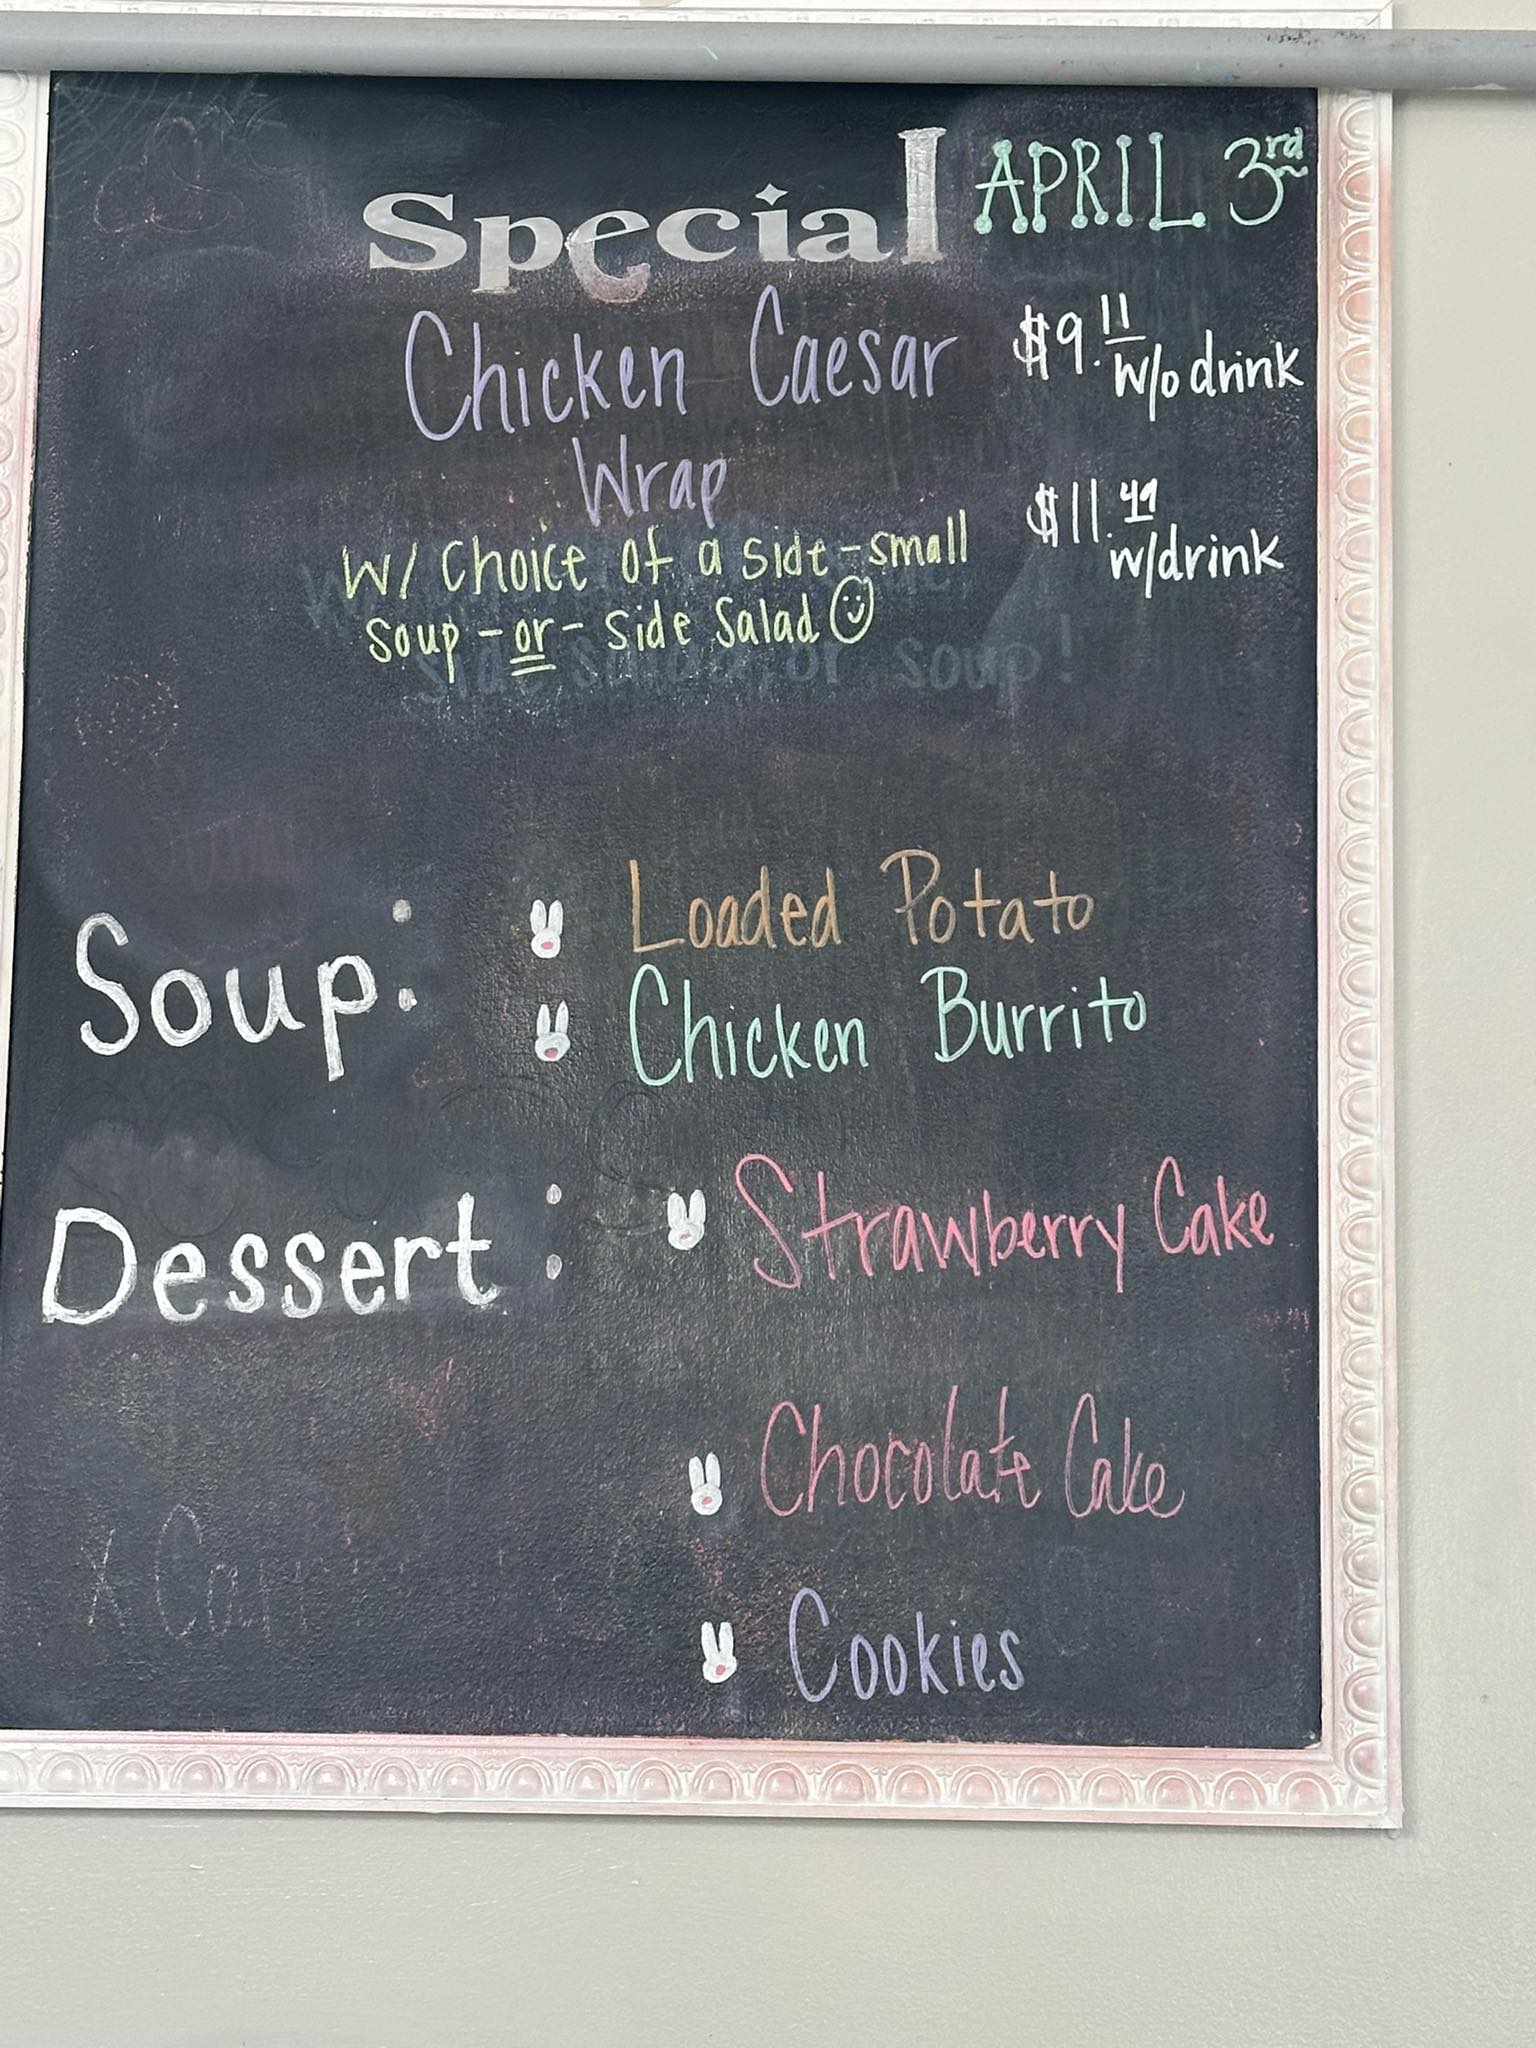 Special
APRIL 3rd
Chicken Caesar
Wrap
$9.11
w/o drink
$11.49
w/drink
W/ Choice of a side-small
soup -or- side salad
side salad or soup!
Soup:
Loaded Potato
Chicken Burrito
Dessert:
Strawberry Cake
Chocolate Cake
Cookies